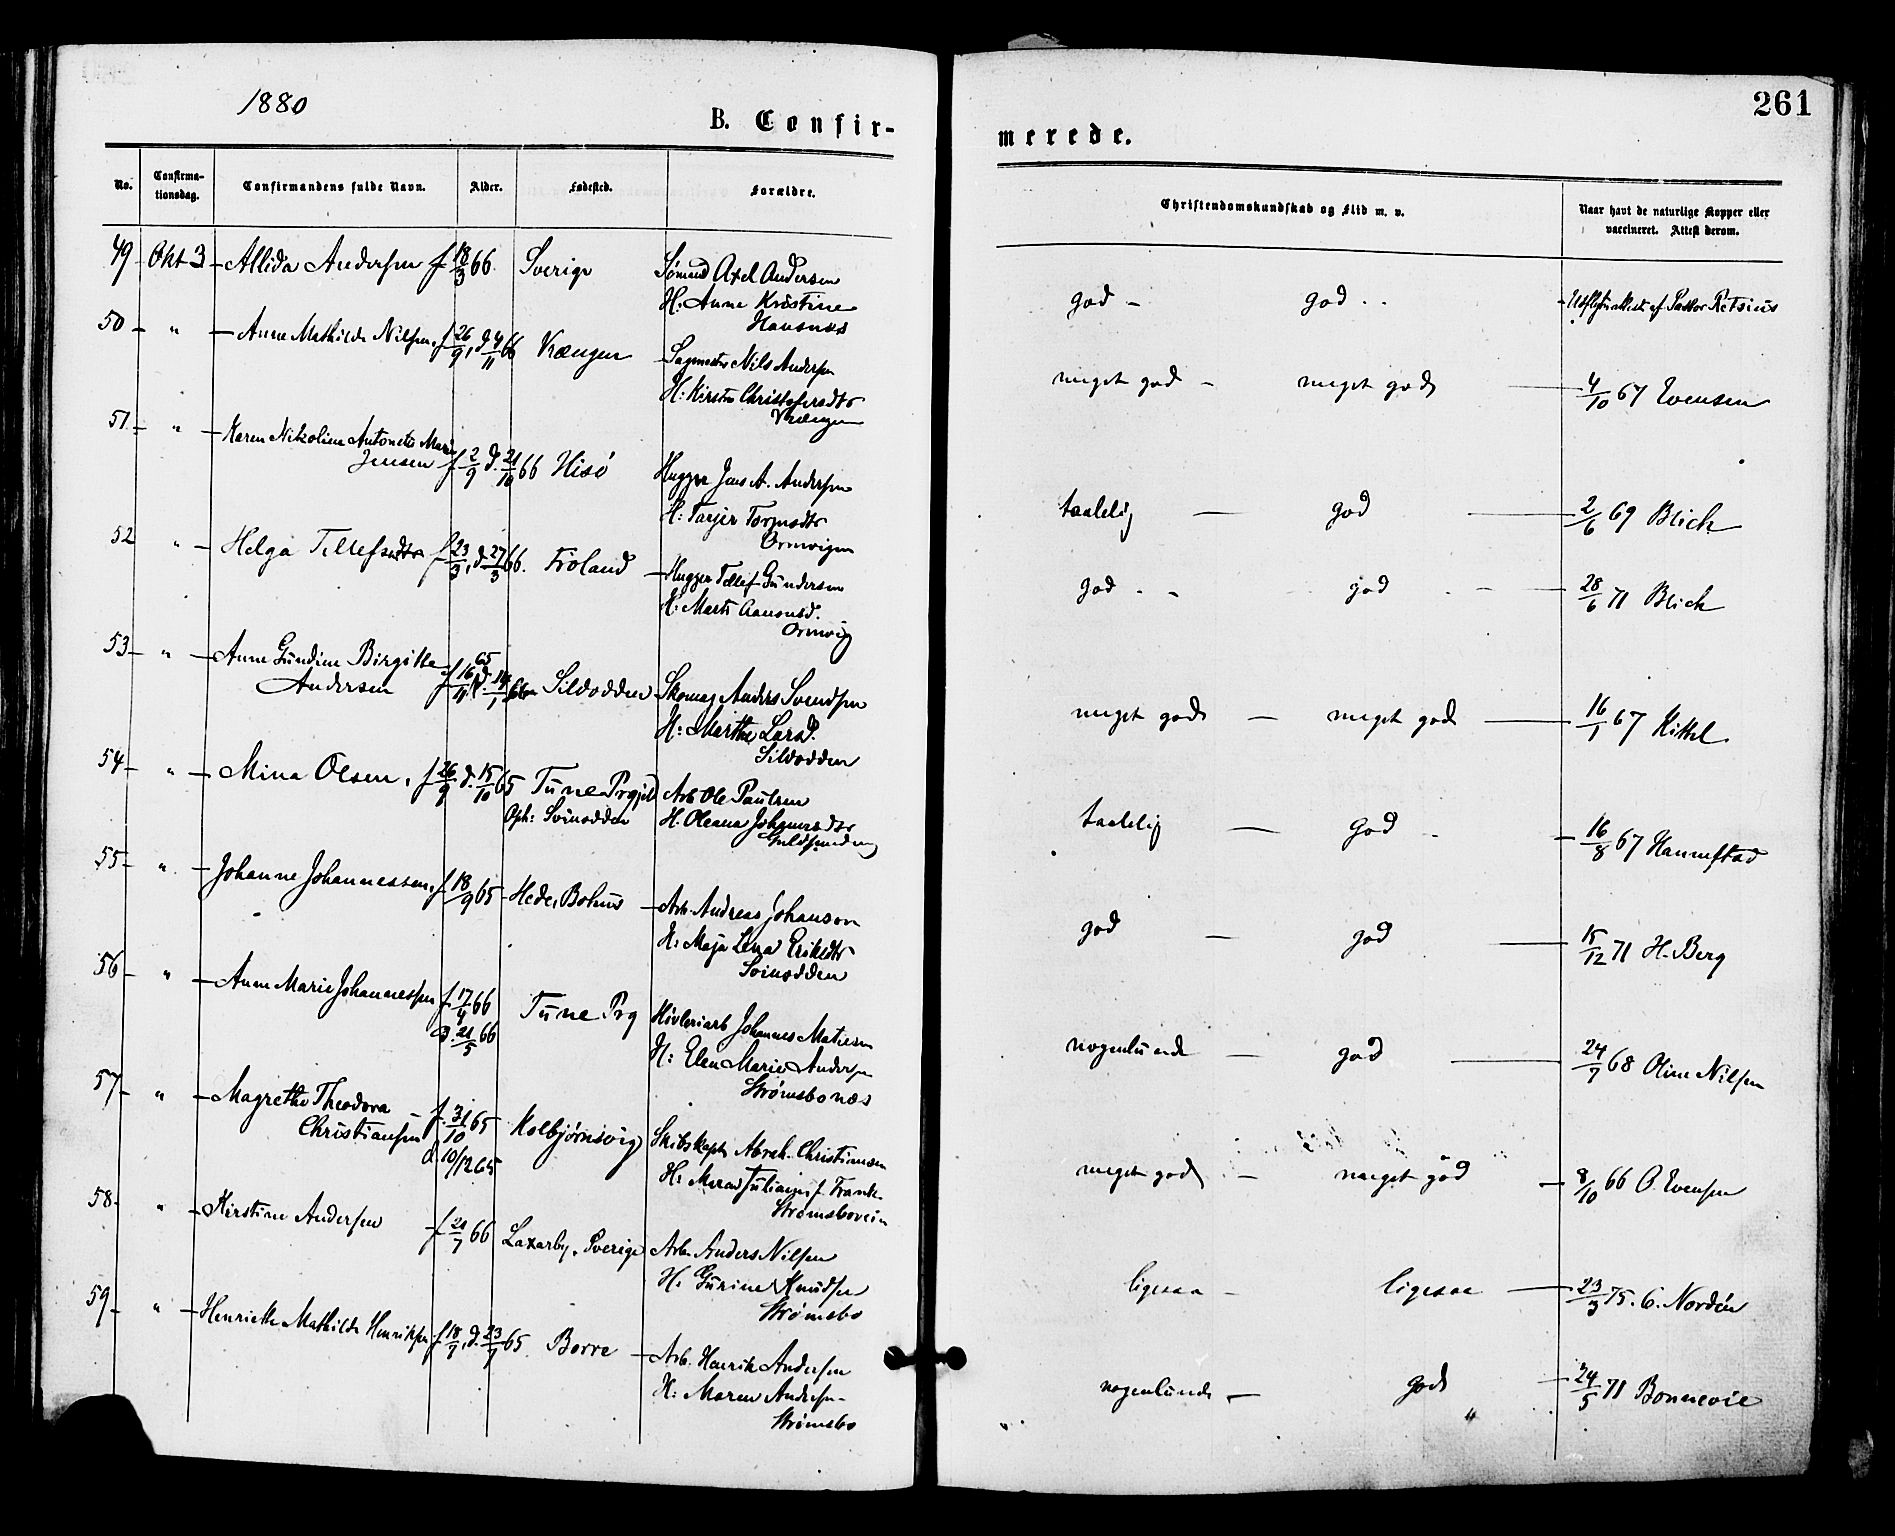 1880
B. Confir-
No.
Confirma-
tionsdag.
Confirmandens fulde Navn.
Alder.
Fødested.
Forældre.
49 Okt 3 Allida Andersen f 18/3 66. Sverige Sömand Axel Andersen
H: Anne Kristine
Hansnæs
50 " Anne Mathilde Nilsen, f 26/9, d. 4/11 66 Vrængen Sagmester Nils Andersen
H: Kirsten Christofersdtr
Vrængen
51 " Karen Nikoline Antonette Marie
Jensen f 2/9 d. 21/10 66 Hisö Hugger Jens A. Andersen
H: Tarjer Tormodtr
Ormvigen
52 " Helga Tellefsdtr f 23/3, d. 27/3 66. Froland Hugger Tellef Gundersen
H: Marte Aanonsd.
Ormvig
53 " Anne Gundine Birgitte
Andersen f 16/11 65 d. 14/1 66 Sildodden Skomag Anders Svendsen
H: Marthe Larsd.
Sildodden
54 " Mina Olsen, f 26/9 d. 15/10 65 Tune Prgjld Arb Ole Paulsen
Oph: Svinodden H. Oleana Johannesdtr
Guldsmedeng
55 " Johanne Johannessen, f 18/9 65 Hede, Bohus Arb. Andreas Johanson
H: Maja Lena Eriksdtr
Svinodden
56 " Anne Marie Johannessen f 17/4 66 Tune Prg Hövleriarb Johannes Matiesen
d. 21/5 66 H: Elen Marie Andersen
Strømsbonæs
57 " Magrethe Theodora
Christiansen f. 31/10 65 Kolbjørnsvig Skibskapt Abrah. Christiansen
d. 10/12 65 H: Maren f. Frank.
Strømsboveien
58 " Kirstine Andersen f 21/7 66 Laxarby, Sverige Arb. Anders Nilsen
H: Gurine Knudsen
Strømsbo
59 " Henriette Mathilde Henriksen f 18/7, d. 23/7 65 Borre Arb. Henrik Andersen
H: Maren Andersen
Strømsbo
261
merede.
Christendomskundskab og Flid m. v.
Naar havt de naturlige Kopper eller
vaccineret. Attest derom.
god - god Udflytn.attest af Pastor Retsius
meget god - meget god 4/10 67 Evensen
taalelig - god 2/6 69 Blich
god - god 28/6 71 Blich
meget god - meget god 16/1 67 Kittel
taalelig - god 16/8 67 Hannestad
god - god 15/12 71 H. Berg
nogenlunde - god 24/7 68 Oline Nilsen
meget god - meget god 8/10 66 O. Evensen
ligesaa - ligesaa 23/3 75. C. Nordén
nogenlunde - god 24/5 71 Bonnevie